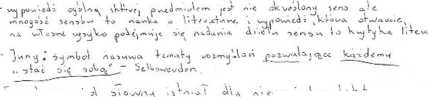 - wypowiedź ogólną której przedmiotem jest nie określony sens ale
mnogość sensów to nauka o literaturze i wypowiedź, która otwarcie,
na własne ryzyko podejmuje się nadania dziełu sensu to krytyka liter
- Jung: symbol nasuwa tematy rozmyślań pozwalające każdemu
"stać się sobą" -
słowny istniał dla nie